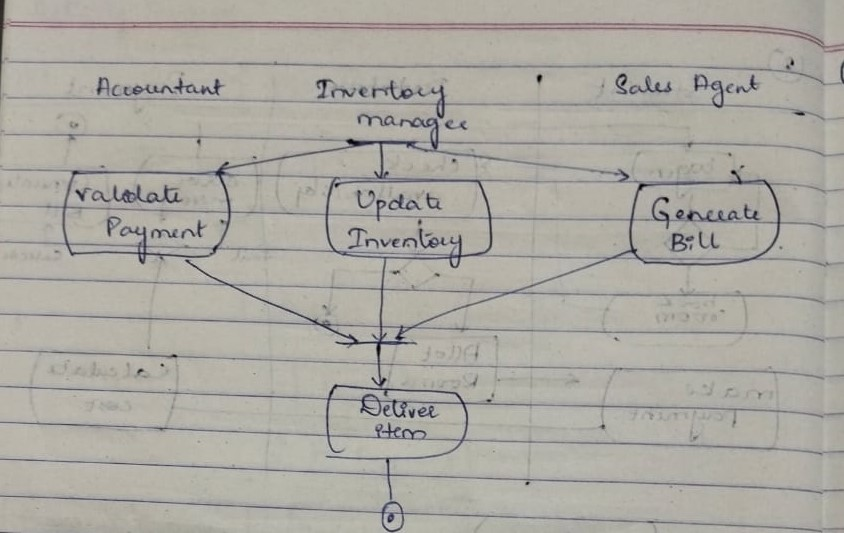 Accountant
Inventory
manager
Sales Agent
Validate
Payment
Update
Inventory
Generate
Bill
Deliver
item